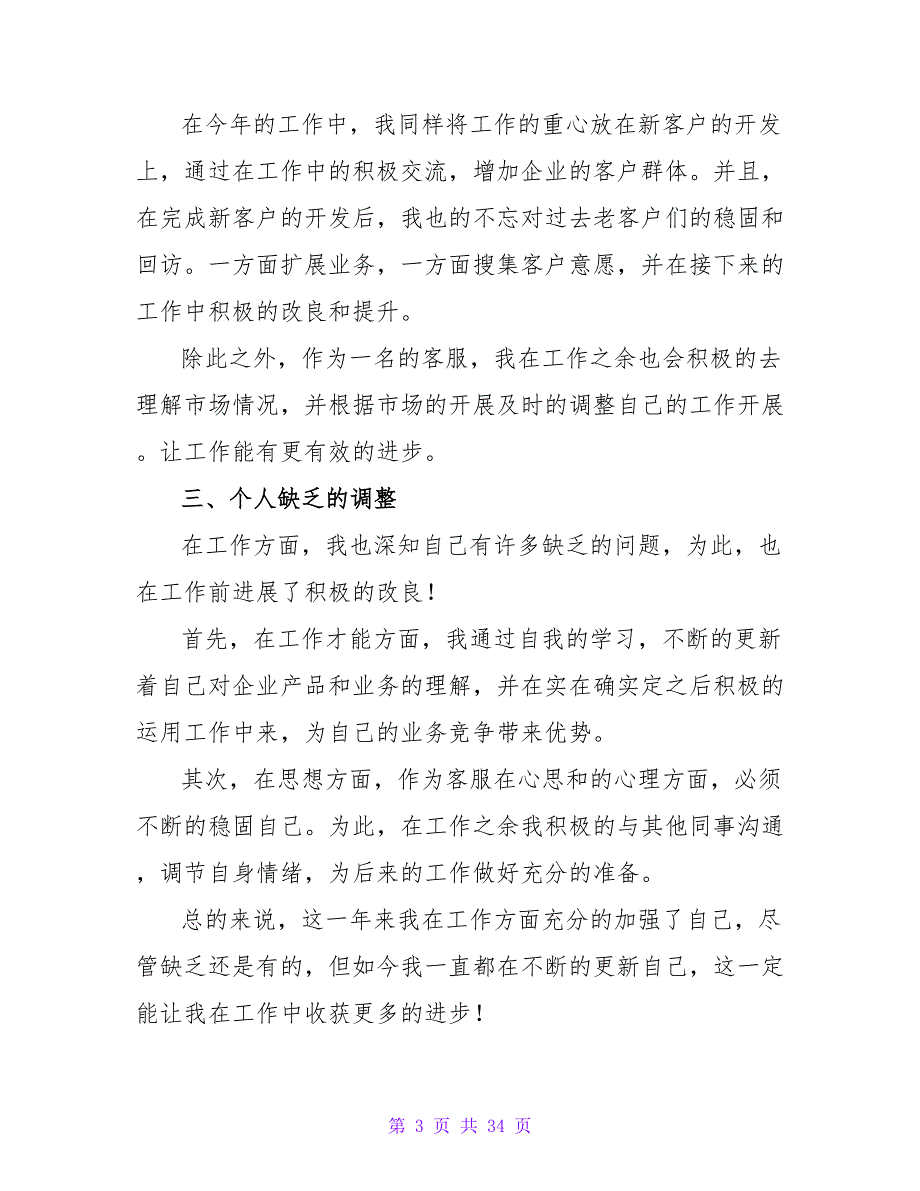 在今年的工作中，我同样将工作的重心放在新客户的开发
上，通过在工作中的积极交流，增加企业的客户群体。并且，
在完成新客户的开发后，我也的不忘对过去老客户们的稳固和
回访。一方面扩展业务，一方面搜集客户意愿，并在接下来的
工作中积极的改良和提升。
除此之外，作为一名的客服，我在工作之余也会积极的去
理解市场情况，并根据市场的开展及时的调整自己的工作开展
。让工作能有更有效的进步。
三、个人缺乏的调整
在工作方面，我也深知自己有许多缺乏的问题，为此，也
在工作前进展了积极的改良！
首先，在工作才能方面，我通过自我的学习，不断的更新
着自己对企业产品和业务的理解，并在实在确实定之后积极的
运用工作中来，为自己的业务竞争带来优势。
其次，在思想方面，作为客服在心思和的心理方面，必须
不断的稳固自己。为此，在工作之余我积极的与其他同事沟通
，调节自身情绪，为后来的工作做好充分的准备。
总的来说，这一年来我在工作方面充分的加强了自己，尽
管缺乏还是有的，但如今我一直都在不断的更新自己，这一定
能让我在工作中收获更多的进步！
第 3 页 共 34 页